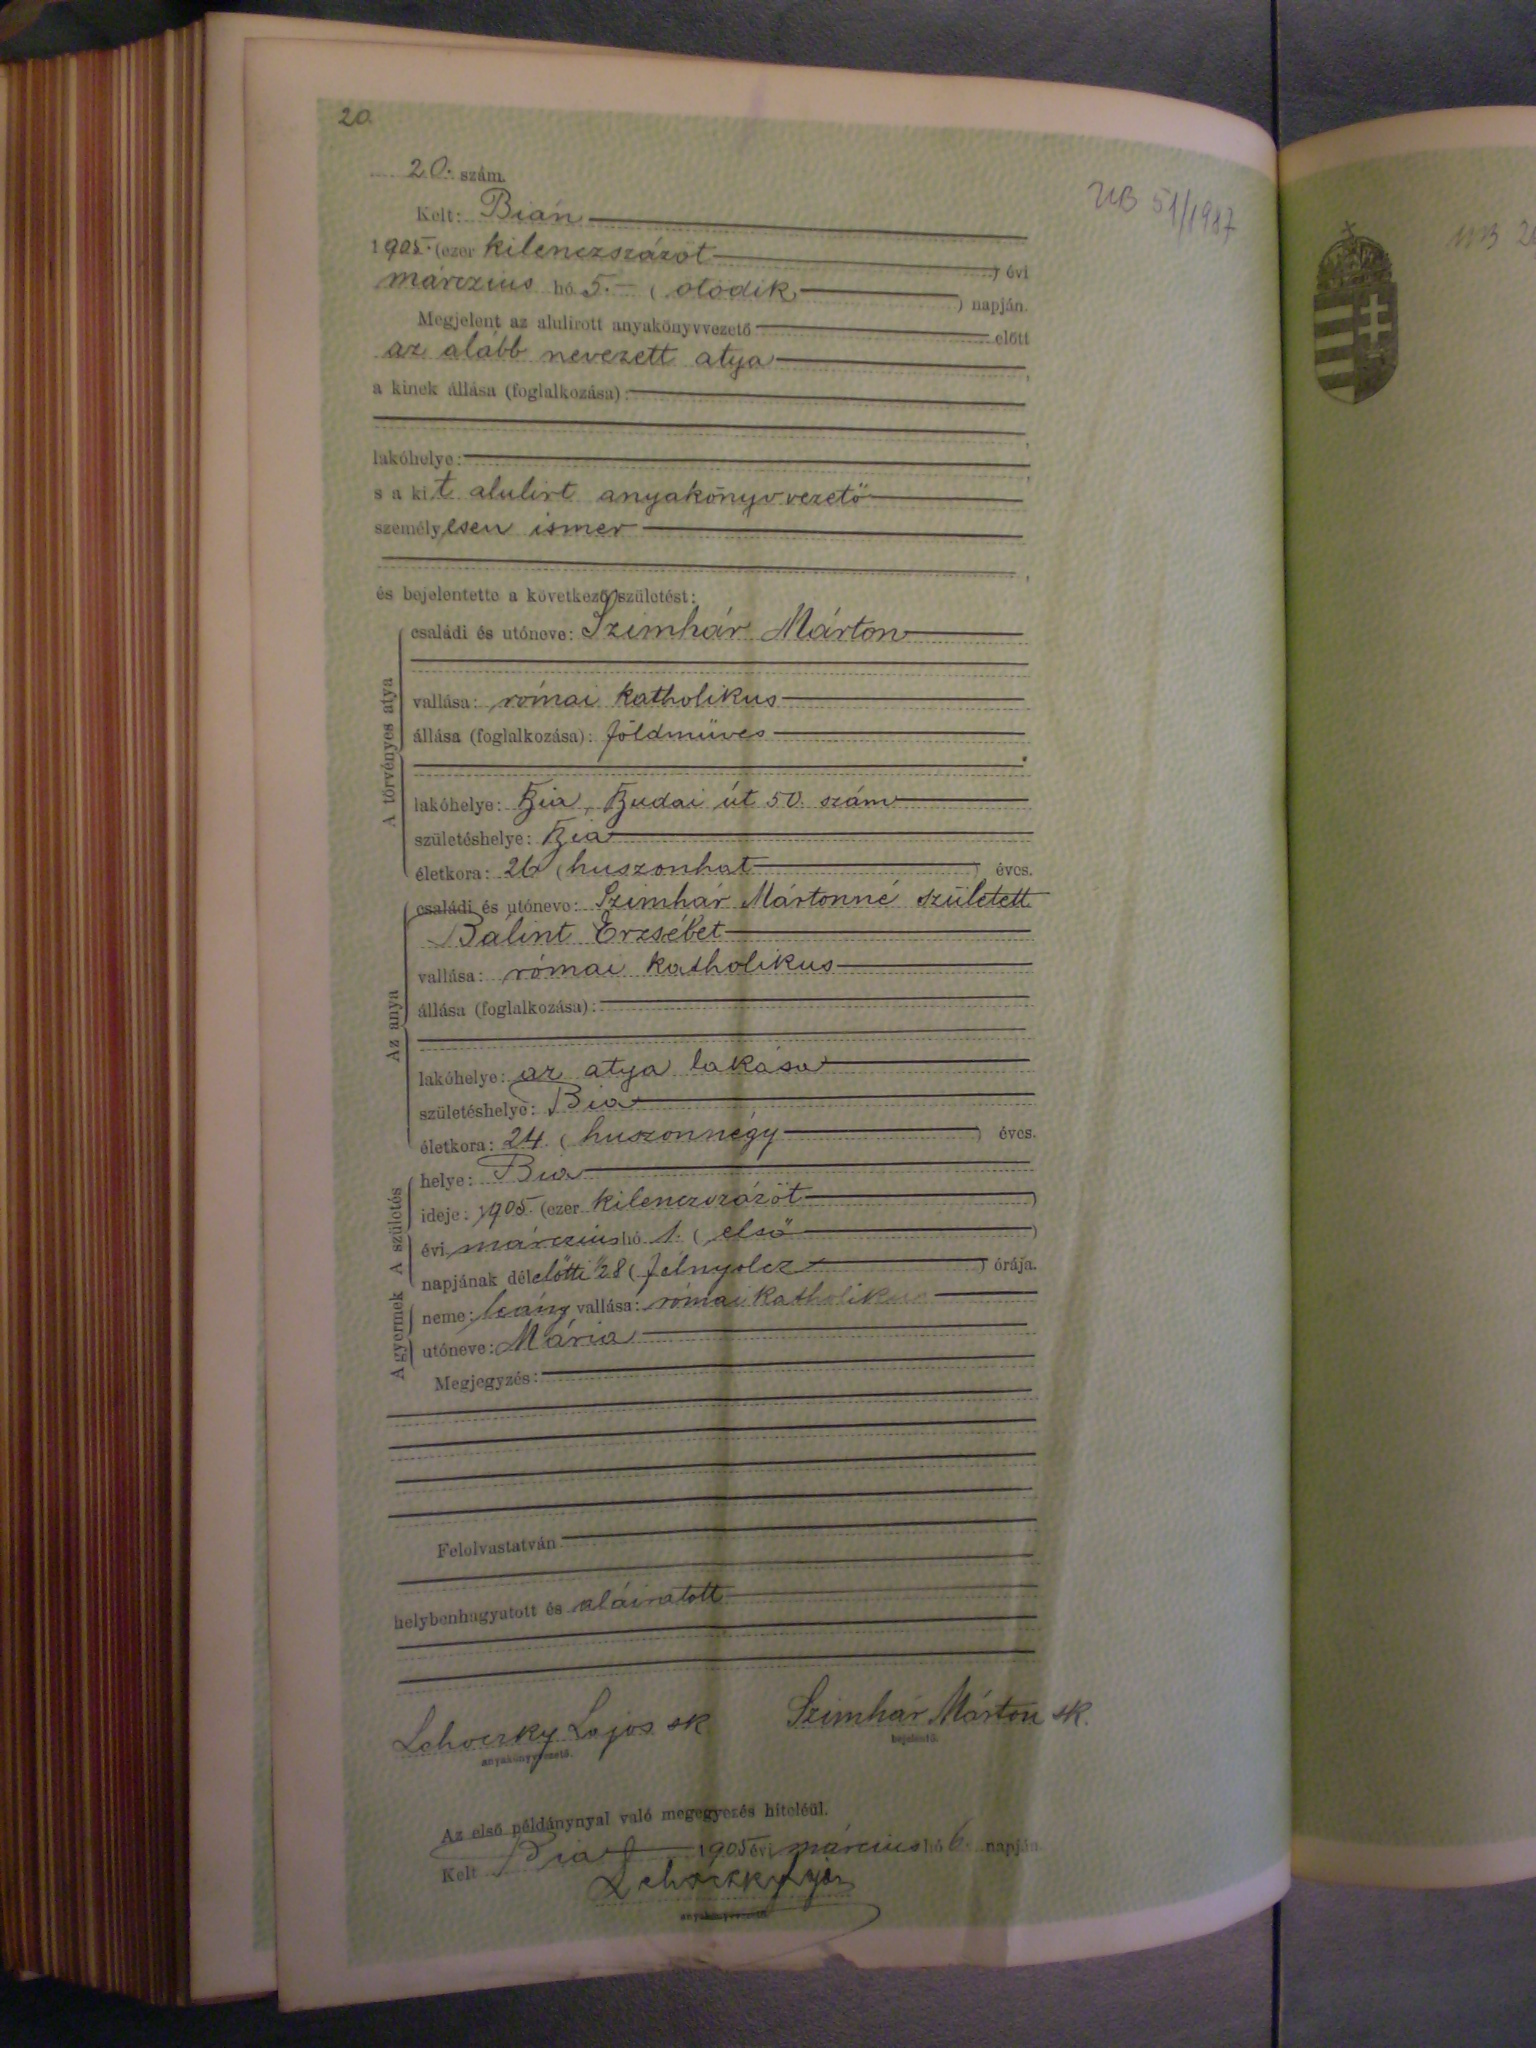 20
20. szám.
UB 51/1987
Kelt: Bián
1905. (ezer kilenczszázöt ) évi
márczius hó 5. ( ötödik ) napján.
Megjelent az alulirott anyakönyvvezető előtt
az alább nevezett atya ,
a kinek állása (foglalkozása):
lakóhelye:
s a kit alulirt anyakönyvvezető
személyesen ismer
és bejelentette a következő születést:
A törvényes atya
családi és utóneve: Szimhár Márton
vallása: római katholikus
állása (foglalkozása): földmüves
lakóhelye: Bia, Budai út 50. szám
születéshelye: Bia
életkora: 26 ( huszonhat ) éves.
Az anya
családi és utóneve: Szimhár Mártonné született
Bálint Erzsébet
vallása: római katholikus
állása (foglalkozása):
lakóhelye: az atya lakása
születéshelye: Bia
életkora: 24. ( huszonnégy ) éves.
A születés
helye: Bia
ideje: 1905. (ezer kilenczszázöt )
évi márczius hó 1. ( első )
napjának délelőtti 1/2 8 ( félnyolcz ) órája.
A gyermek
neme: leány vallása: római katholikus
utóneve: Mária
Megjegyzés:
Felolvastatván
helybenhagyatott és aláiratott
Lehoczky Lajos sk Szimhár Márton sk.
anyakönyvvezető. bejelentő.
Az első példánynyal való megegyezés hiteléül.
Kelt Bia 1905 évi márczius hó 6. napján
Lehoczky Lajos
anyakönyvvezető.